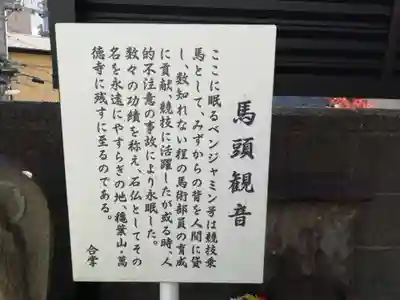 馬頭観音
ここに眠るベンジャミン号は競技乗
馬として、みずからの背を人間に貸
し、数知れない程の馬術部員の育成
に貢献、競技に活躍したが或る時、人
的不注意の事故により永眠した。
数々の功績を称え、石仏としてその
名を永遠にやすらぎの地、穂葉山・萬
徳寺に残すに至るのである。
合掌